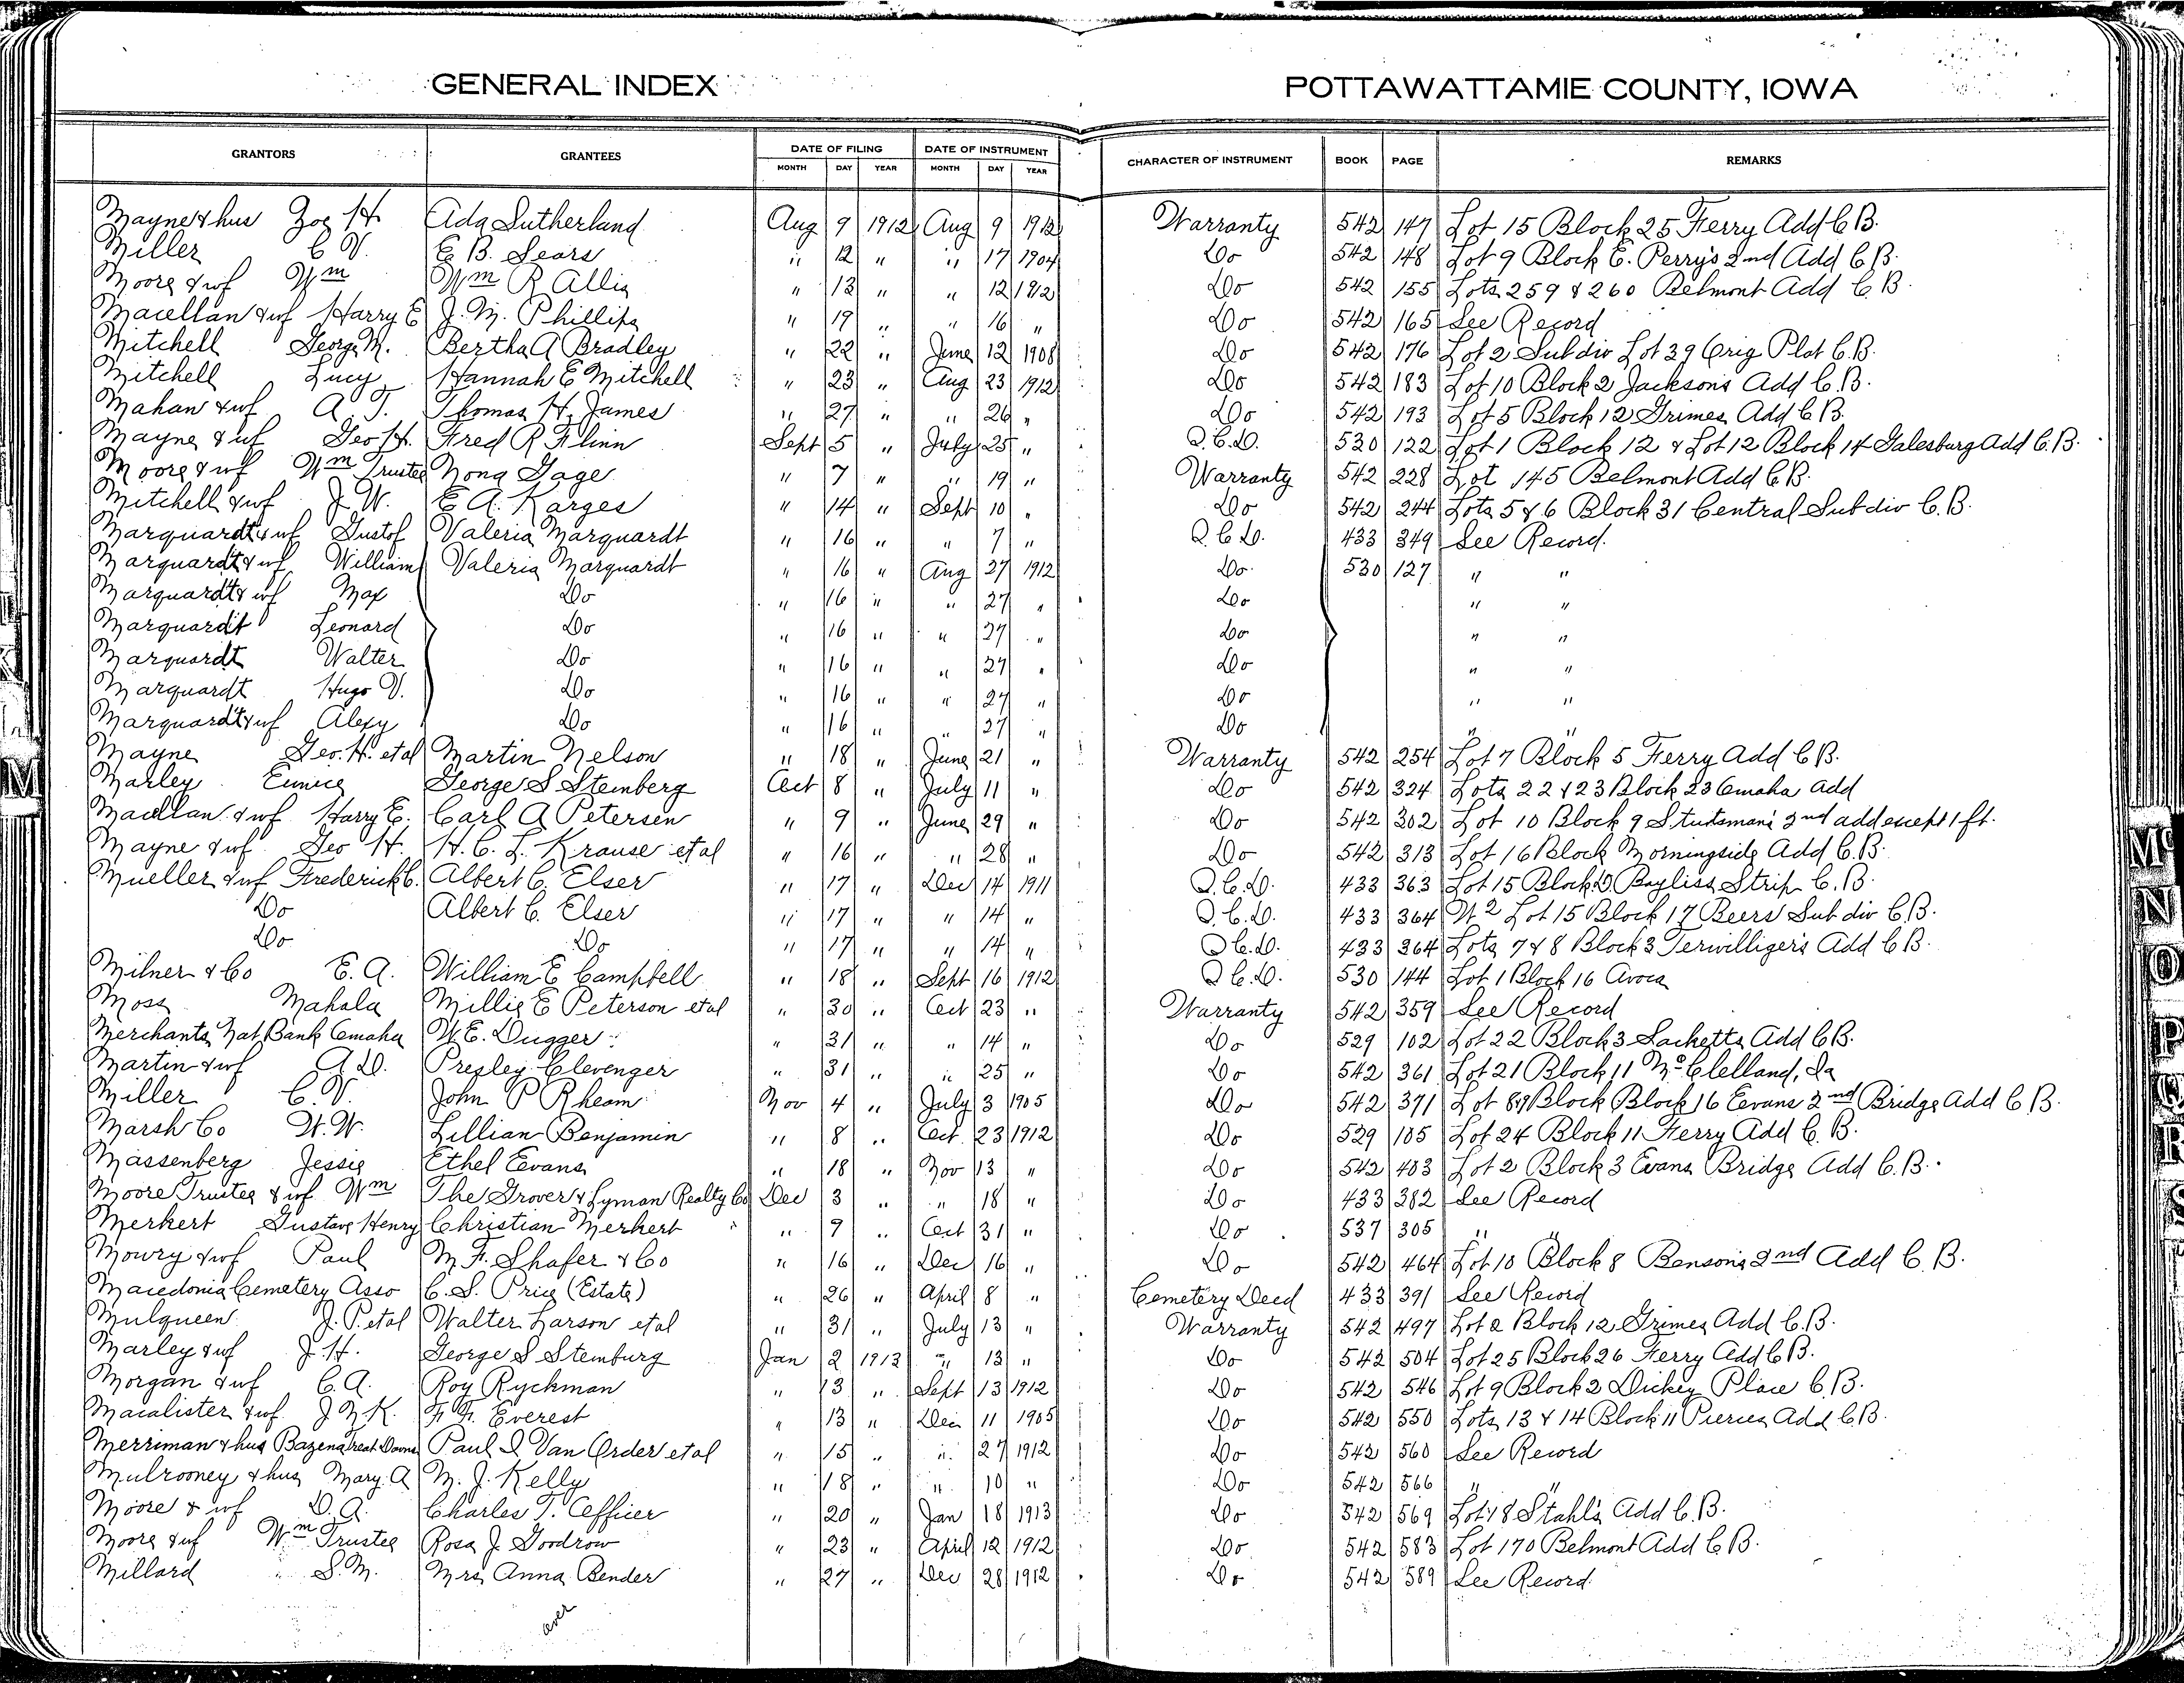 GENERAL INDEX
POTTAWATTAMIE COUNTY, IOWA
GRANTORS GRANTEES DATE OF FILING DATE OF INSTRUMENT CHARACTER OF INSTRUMENT BOOK PAGE REMARKS
MONTH DAY YEAR MONTH DAY YEAR
Mayne & hus Zoe H. Ada Sutherland Aug 9 1912 Aug 9 1912 Warranty 542 147 Lot 15 Block 25 Ferry Add C.B.
Miller C V. E B. Sears " 12 " " 17 1904 Do 542 148 Lot 9 Block E. Perry's 2nd Add C.B.
Moore & wf Wm Wm R Allis " 13 " " 12 1912 Do 542 155 Lots 259 & 260 Belmont Add C.B.
Macellan & wf Harry E J. M. Phillips " 19 " " 16 " Do 542 165 See Record
Mitchell George M. Bertha A Bradley " 22 " June 12 1908 Do 542 176 Lot 2 Subdiv Lot 39 Orig Plat C.B.
Mitchell Lucy Hannah E Mitchell " 23 " Aug 23 1912 Do 542 183 Lot 10 Block 2 Jacksons Add C.B.
Mahan & wf A. T. Thomas H. James " 27 " " 26 " Do 542 193 Lot 5 Block 12 Grimes Add C.B.
Mayne & wf Geo H. Fred R Flinn Sept 5 " July 25 " Q.C.D. 530 122 Lot 1 Block 12 & Lot 12 Block 14 Galesburg Add C.B.
Moore & wf Wm Trustee Nona Gage " 7 " " 19 " Warranty 542 228 Lot 145 Belmont Add C.B.
Mitchell & wf J. W. E A. Karges " 14 " Sept 10 " Do 542 244 Lots 5 & 6 Block 31 Central Subdiv C.B.
Marquardt & wf Gustof Valeria Marquardt " 16 " " 7 " Q.C.D. 433 349 See Record.
Marquardt & wf William Valeria Marquardt " 16 " Aug 27 1912 Do 530 127 " "
Marquardt & wf Max Do " 16 " " 27 " Do " "
Marquardt Leonard Do " 16 " " 27 " Do " "
Marquardt Walter Do " 16 " " 27 " Do " "
Marquardt Hugo V. Do " 16 " " 27 " Do " "
Marquardt & wf Alexy Do " 16 " " 27 " Do " "
Mayne Geo. H. et al Martin Nelson " 18 " June 21 " Warranty 542 254 Lot 7 Block 5 Ferry Add C.B.
Marley Eunice George S Stemberg Oct 8 " July 11 " Do 542 324 Lots 22 & 23 Block 23 Omaha Add
Macellan & wf Harry E. Carl A Petersen " 9 " June 29 " Do 542 302 Lot 10 Block 9 Stutsman's 2nd add except 1 ft.
Mayne & wf Geo H. H. C. L. Krause et al " 16 " " 28 " Do 542 313 Lot 16 Block Morningside Add C.B.
Mueller & wf Frederick C. Albert C. Elser " 17 " Dec 14 1911 Q.C.D. 433 363 Lot 15 Block D Bayliss Strip C.B.
Do Albert C. Elser " 17 " " 14 " Q.C.D. 433 364 W2 Lot 15 Block 17 Beers Sub div C.B.
Do Do " 17 " " 14 " Q.C.D. 433 364 Lots 7 & 8 Block 3 Terwilliger's Add C.B.
Milner & Co E. A. William E Campbell " 18 " Sept 16 1912 Q.C.D. 530 144 Lot 1 Block 16 Avoca
Moss Mahala Millie E Peterson et al " 30 " Oct 23 " Warranty 542 359 See Record
Merchants Nat Bank Omaha W. E. Dugger " 31 " " 14 " Do 529 102 Lot 22 Block 3 Sacketts Add C.B.
Martin & wf A D. Presley Clevenger " 31 " " 25 " Do 542 361 Lot 21 Block 11 McClelland, Ia
Miller C. V. John P Rheam Nov 4 " July 3 1905 Do 542 371 Lot 89 Block Block 16 Evans 2nd Bridge Add C.B.
Marsh Co W. W. Lillian Benjamin " 8 " Oct 23 1912 Do 529 105 Lot 24 Block 11 Ferry Add C.B.
Massenberg Jessie Ethel Evans " 18 " Nov 13 " Do 542 403 Lot 2 Block 3 Evans Bridge Add C.B.
Moore Trustee & wf Wm The Grover & Lyman Realty Co Dec 3 " " 18 " Do 433 382 See Record
Merkert Gustave Henry Christian Merkert " 9 " Oct 31 " Do 537 305 " "
Mowry & wf Paul M. F. Shafer & Co " 16 " Dec 16 " Do 542 464 Lot 10 Block 8 Benson's 2nd Add C.B.
Macedonia Cemetery Asso C. S. Price (Estate) " 26 " April 8 " Cemetery Deed 433 391 See Record
Mulqueen J. P. et al Walter Larson et al " 31 " July 13 " Warranty 542 497 Lot 2 Block 12 Grimes Add C.B.
Marley & wf J. H. George S Stemburg Jan 2 1913 " 13 " Do 542 504 Lot 25 Block 26 Ferry Add C.B.
Morgan & wf C. A. Roy Ryckman " 13 " Sept 13 1912 Do 542 546 Lot 9 Block 2 Dickey Place C.B.
Macalister & wf J M K. F. F. Everest " 13 " Dec 11 1905 Do 542 550 Lots 13 & 14 Block 11 Pierces Add C.B.
Merriman & hus Bazena Treat Downs Paul I Van Order et al " 15 " " 27 1912 Do 542 560 See Record
Mulrooney & hus Mary A M. J. Kelly " 18 " " 10 " Do 542 566 " "
Moore & wf D. A. Charles T. Officer " 20 " Jan 18 1913 Do 542 569 Lot 18 Stahl's Add C.B.
Moore & wf Wm Trustee Rosa J. Goodrow " 23 " April 12 1912 Do 542 583 Lot 170 Belmont Add C.B.
Millard S. M. Mrs Anna Bender " 27 " Dec 28 1912 Do 542 589 See Record
over
M
Mc
N
O
P
Q
R
S